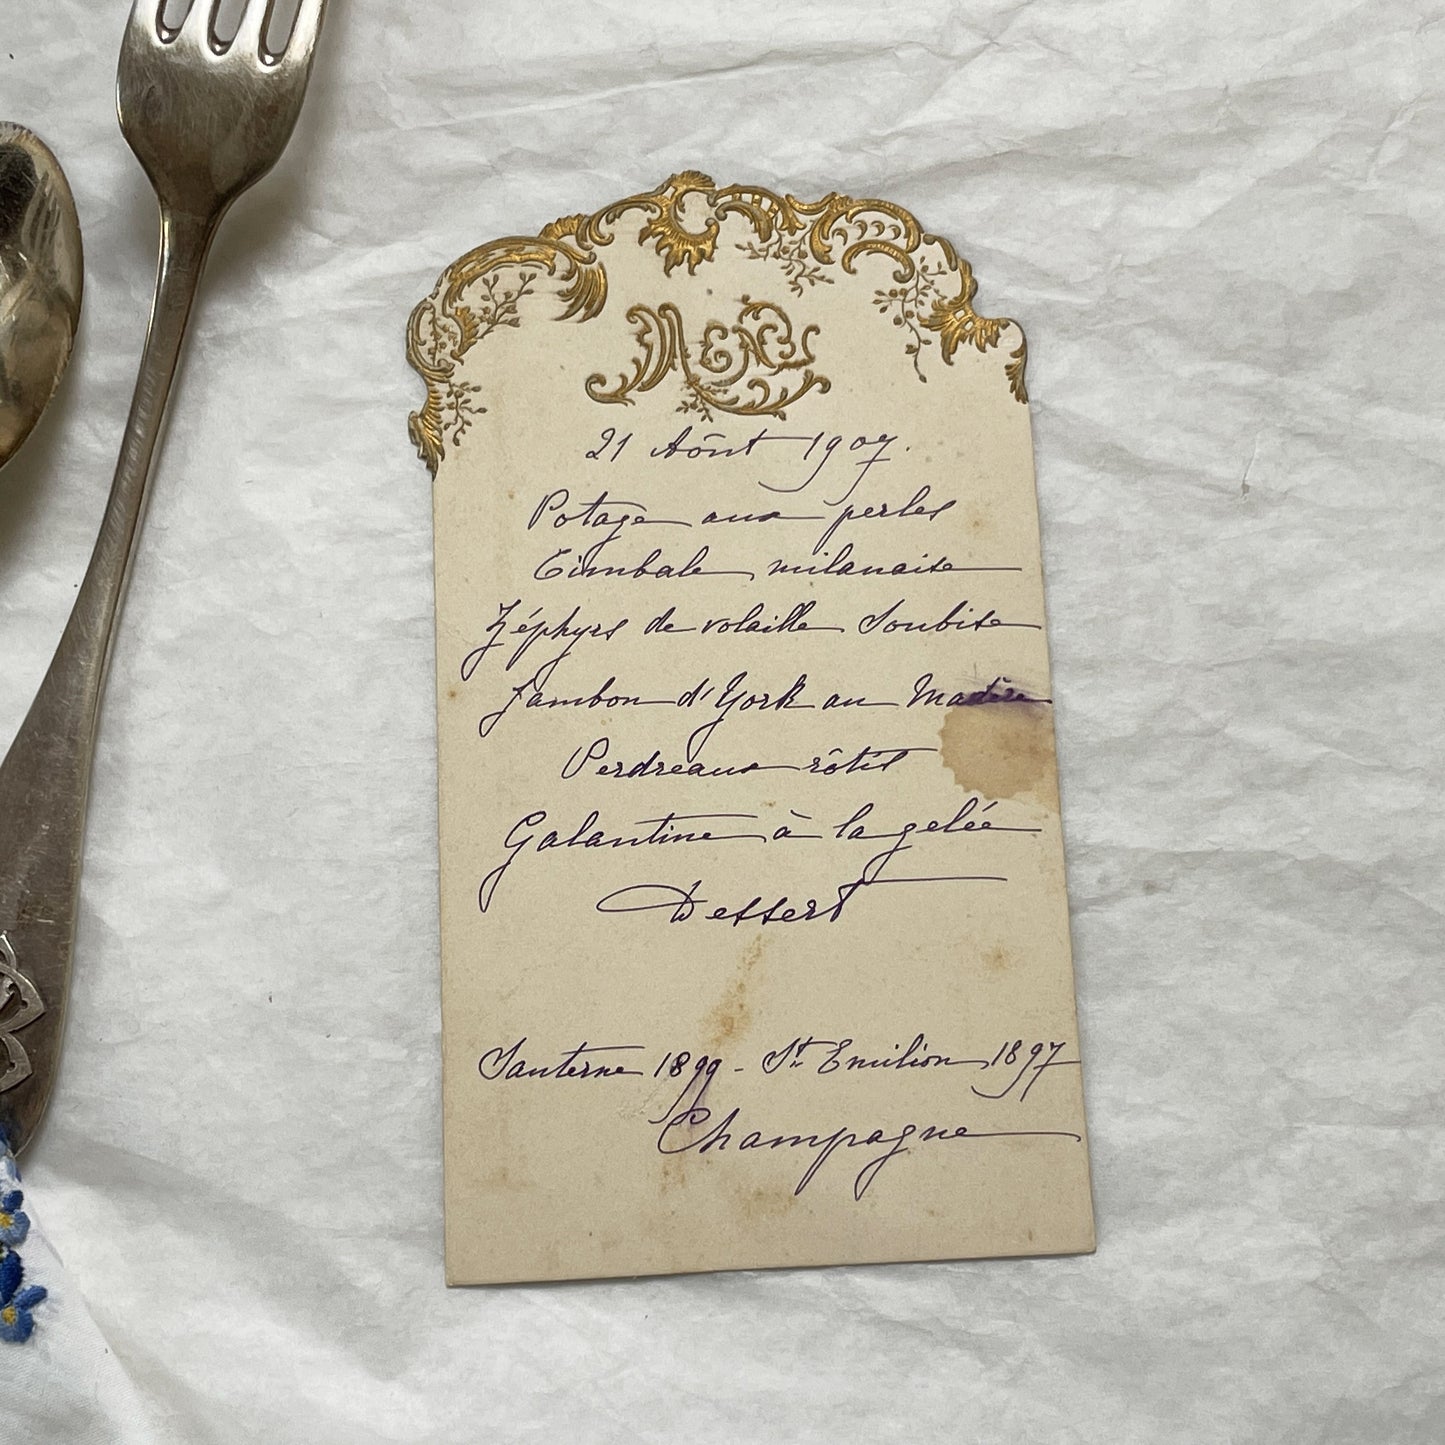 MENU
21 Aôut 1907.
Potage aux perles
Timbale milanaise
Zéphyrs de volaille Soubise
Jambon d'York au Madère
Perdreaux rôtis
Galantine à la gelée
Dessert
Sauterne 1899 - St Emilion 1897
Champagne